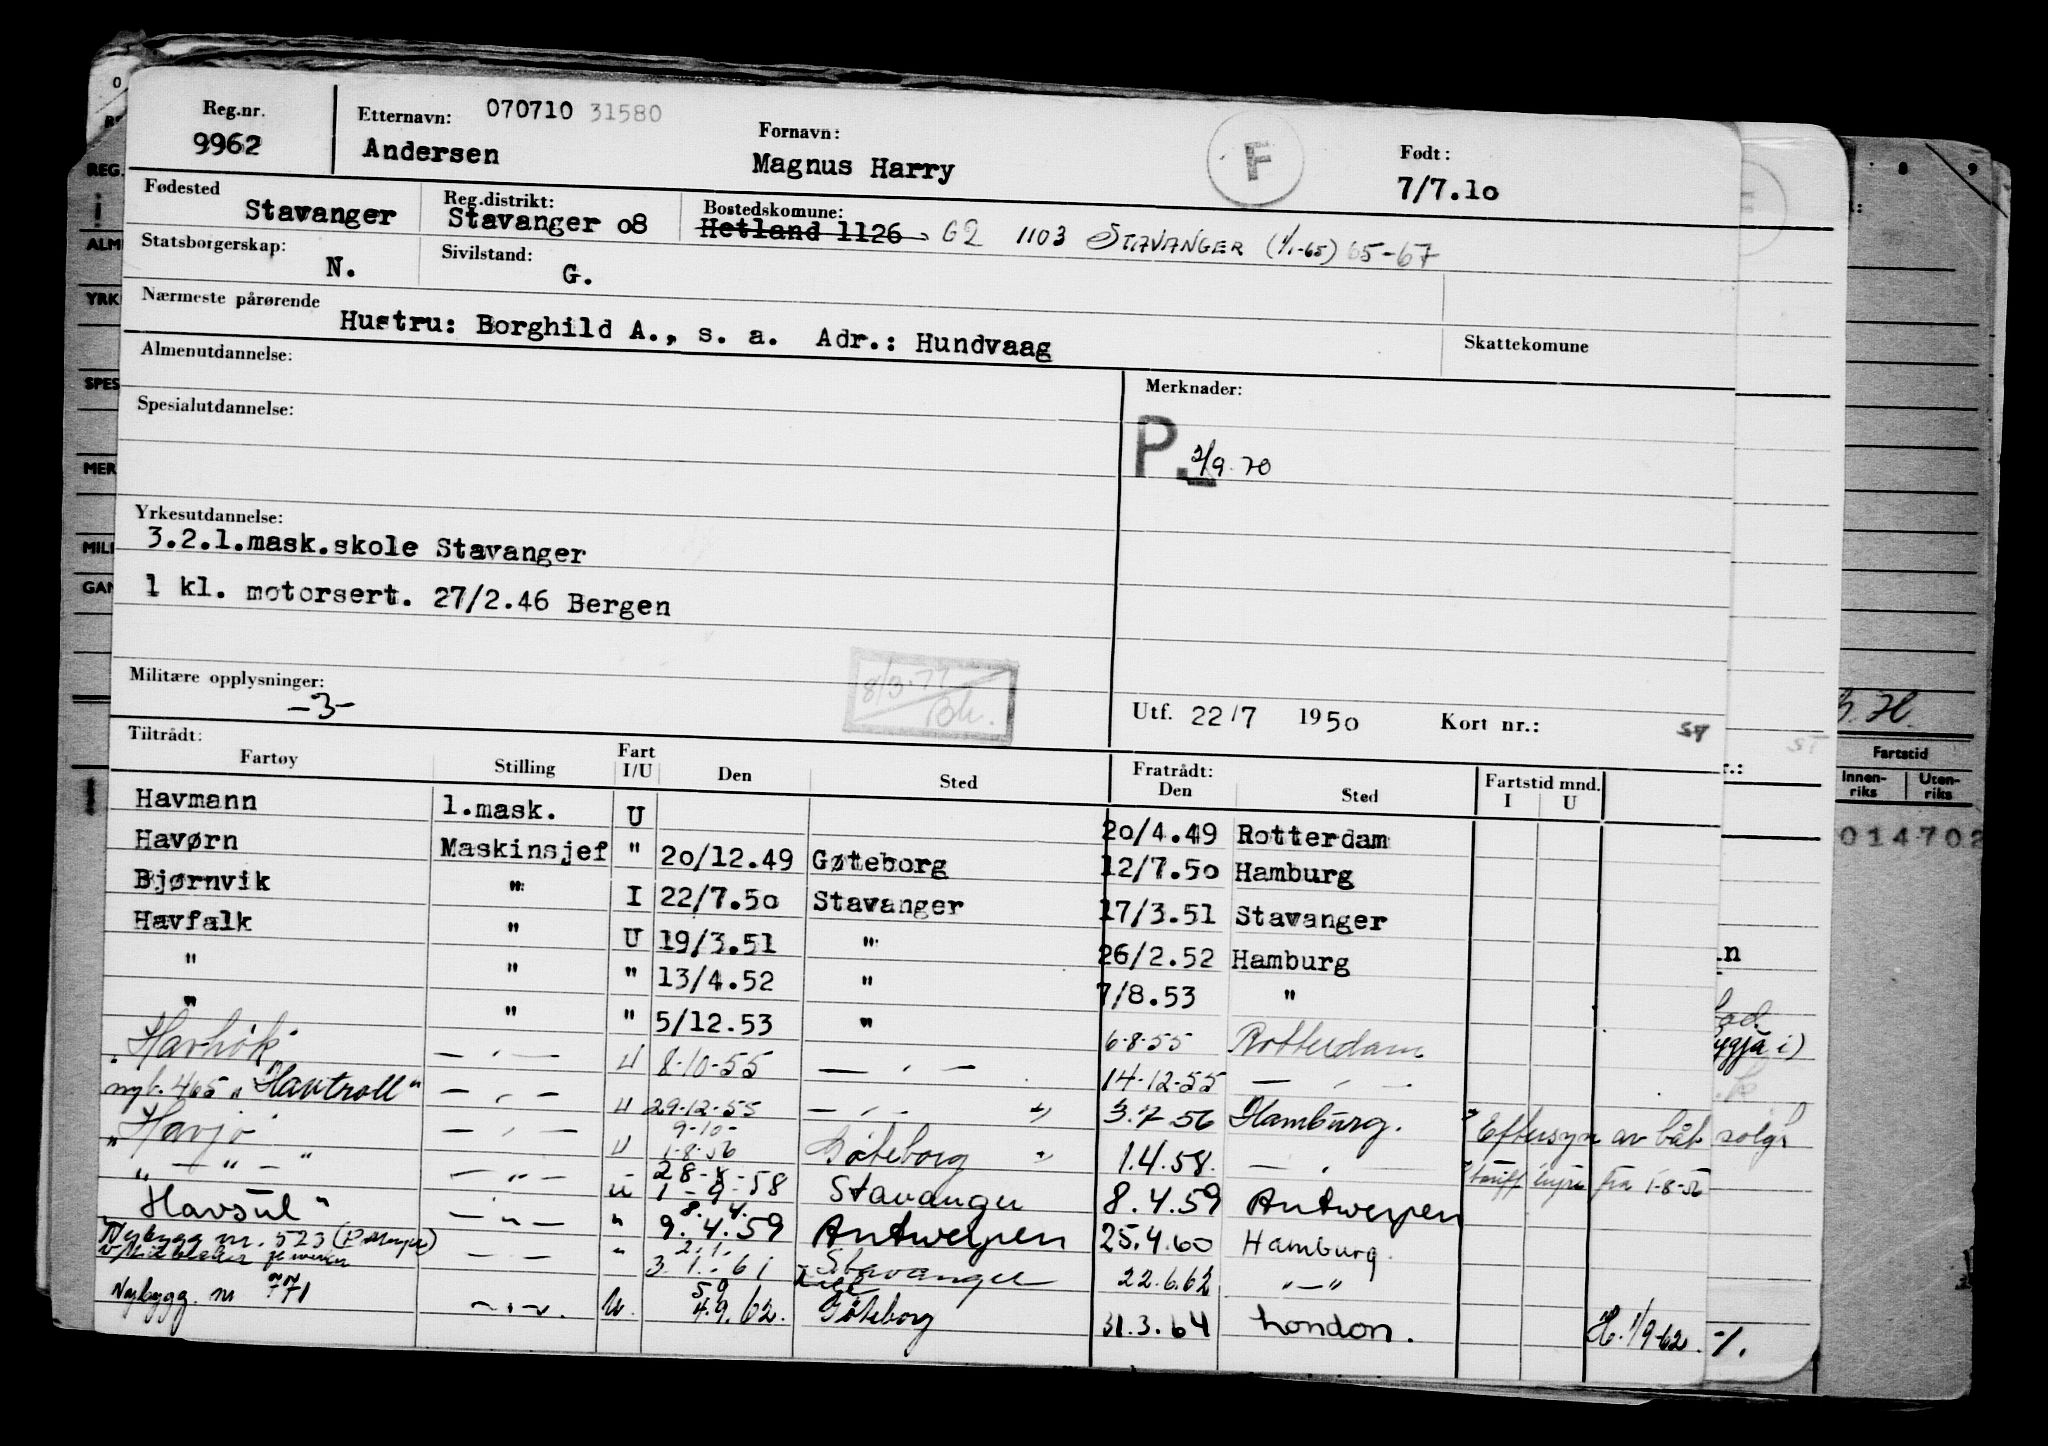 Reg.nr. 9962
Etternavn: 070710 31580
Andersen
Fornavn:
Magnus Harry
F
Født:
7/7.10
Fødested Stavanger
Reg.distrikt: Stavanger 08
Bostedskomune: Hetland 1126 G2 1103 STAVANGER (1/1-65) 65-67
Statsborgerskap: N.
Sivilstand: G.
Nærmeste pårørende
Hustru: Borghild A., s. a. Adr.: Hundvaag
Skattekomune
Almenutdannelse:
Merknader:
P. 2/9.70
Spesialutdannelse:
Yrkesutdannelse:
3.2.1.mask.skole Stavanger
1 kl. motorsert. 27/2.46 Bergen
Militære opplysninger:
-3-
8/3-77
Utf. 22/7 1950 Kort nr.: ST
Tiltrådt: Fratrådt: Fartstid mnd.
Fartøy Stilling Fart I/U Den Sted Den Sted I U
Havmann 1.mask. U 20/4.49 Rotterdam
Havørn Maskinsjef " 20/12.49 Gøteborg 12/7.50 Hamburg
Bjørnvik " I 22/7.50 Stavanger 17/3.51 Stavanger
Havfalk " U 19/3.51 " 26/2.52 Hamburg
" " " 13/4.52 " 7/8.53 "
" " " 5/12.53 " 6-8-55 Rotterdam
"Havhök" — " — U 8-10-55 — " — 14-12-55 — " —
nyb. 465 "Havtroll" — " — U 29-12-55 — " — 3.7.56 Hamburg. Eftersyn av båt
"Havjo" — " — U 9-10- 1-8-56 Göteborg 1.4.58. — " — tariff hyre fra 1-8-56
" — " — " — " — U 28-8-58 1-9-58 Stavanger 8.4.59 Antwerpen
Havsul" — " — " 8. 4. 9.4.59 Antwerpen 25.4.60 Hamburg.
Nybygg nr. 523 — " — " 2.1. 3.1.-61 Stavanger 22.6.62 " — "
Nybygg. nr 771 — " — U. 59 4.9.62. Göteborg 31.3.64 London. H. 1/9-62.
REG.
ALM
YRK
SPES
MER
MILI
GAN
8 9
Fartstid
Innen-riks Uten-riks
014702